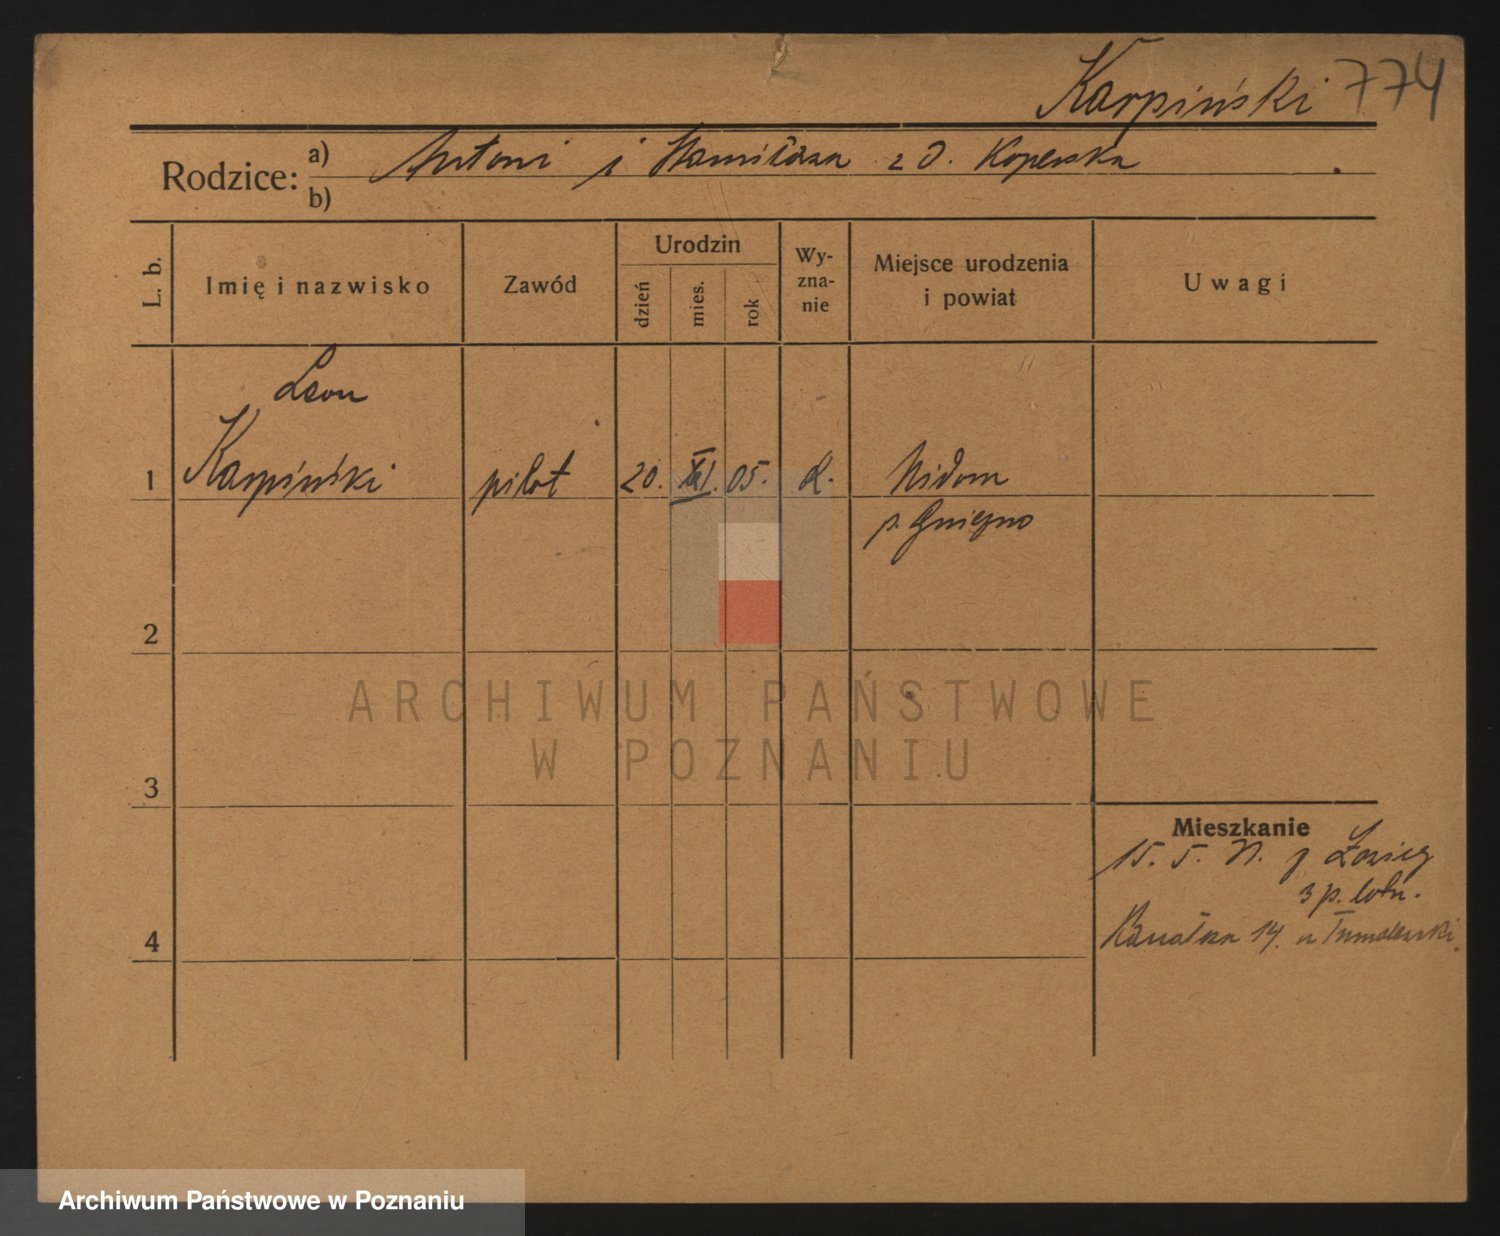 Karpiński 774
Rodzice: a) Antoni i Stanisława z d. Koperska
b)
L. b.
Imię i nazwisko
Zawód
Urodzin
dzień
mies.
rok
Wy-
zna-
nie
Miejsce urodzenia
i powiat
Uwagi
Leon
1 Karpiński pilot 20. XI. 05. k. Nidom
p. Gniezno
2
ARCHIWUM PAŃSTWOWE
W POZNANIU
3
Mieszkanie
15. 5. z
3 p. lotn.
4
14. u
Archiwum Państwowe w Poznaniu